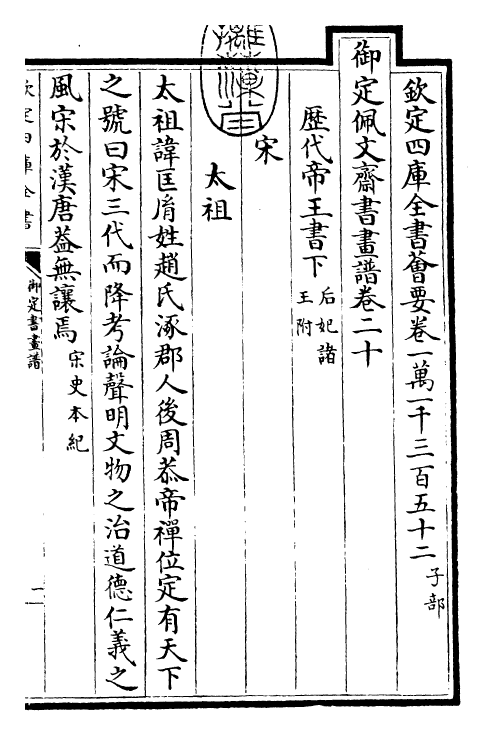 欽定四庫全書薈要卷一萬一千三百五十二 子部
御定佩文齋書畫譜卷二十
歴代帝王書下 后妃諸王附
宋
太祖
太祖諱匡胤姓趙氏涿郡人後周恭帝禪位定有天下
之號曰宋三代而降考論聲明文物之治道德仁義之
風宋於漢唐葢無讓焉 宋史本紀
欽定四庫全書
御定書畫譜
二